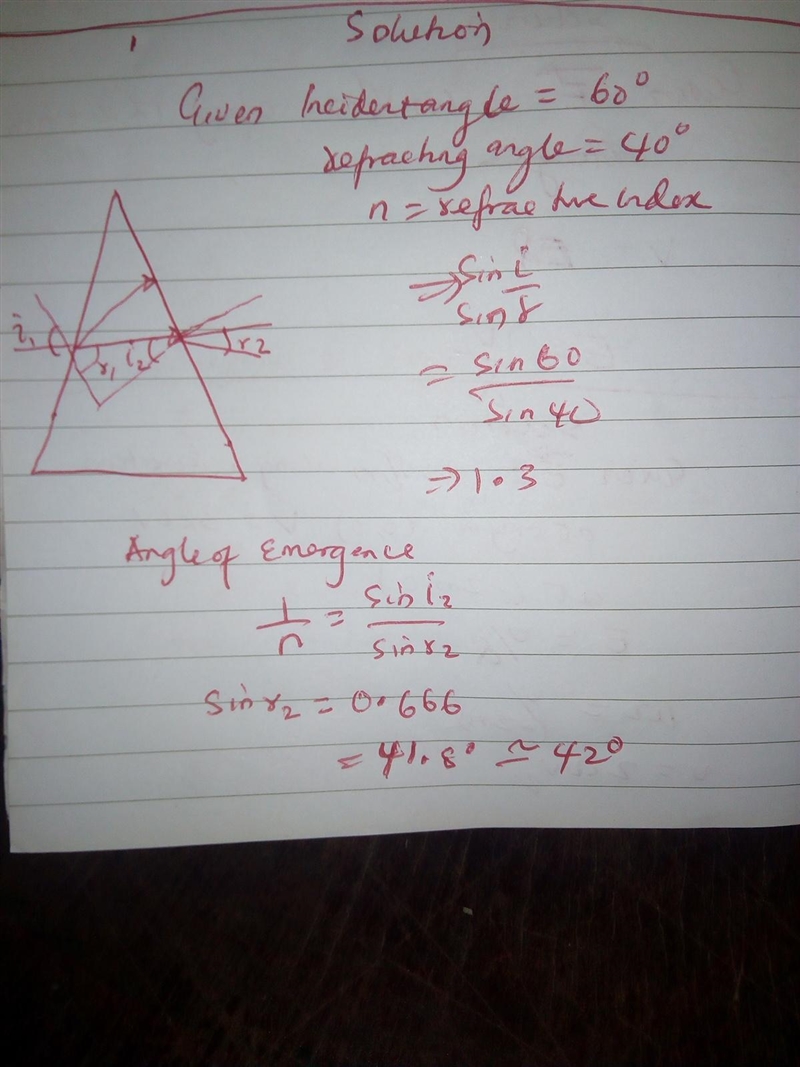 Solution
Given Incidentangle = 60°
refracting angle = 40°
n = refractive index
⇒ sin i / sin r
= sin 60 / sin 40
⇒ 1.3
i₁
r₁
i₂
r₂
Angle of Emergence
1/n = sin i₂ / sin r₂
sin r₂ = 0.666
= 41.8° ≃ 42°